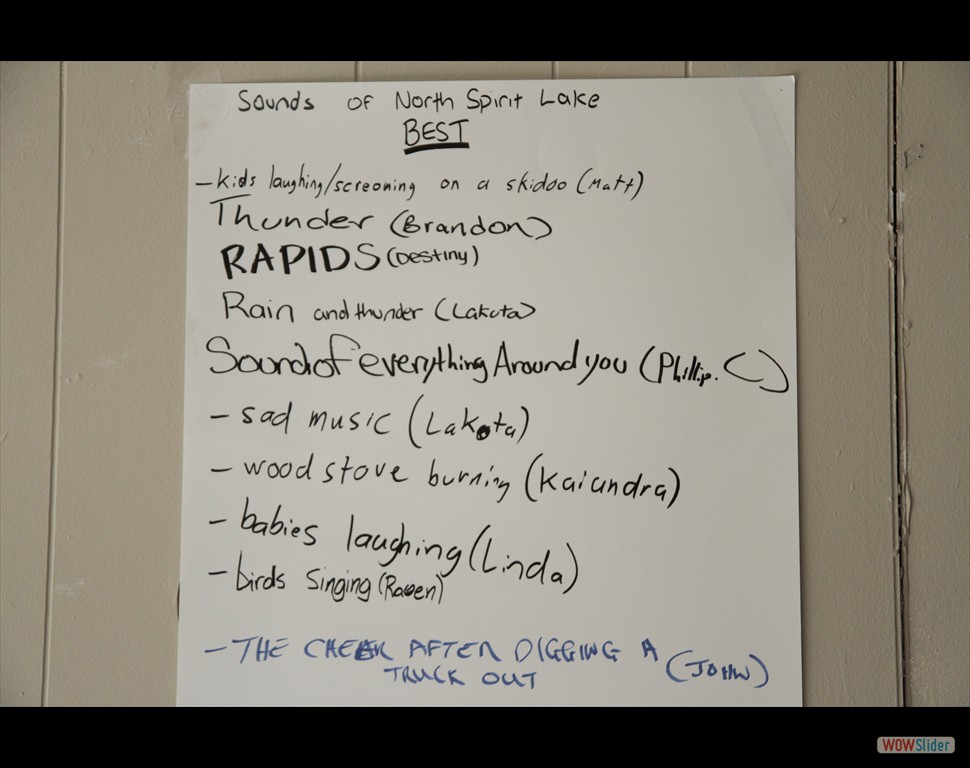 Sounds of North Spirit Lake
BEST
- kids laughing/screaming on a skidoo (Matt)
Thunder (Brandon)
RAPIDS (Destiny)
Rain and thunder (Lakota)
Sound of everything Around you (Phillip. C)
- sad music (Lakota)
- wood stove burning (Kaiandra)
- babies laughing (Linda)
- birds singing (Raven)
- THE CHEER AFTER DIGGING A
TRUCK OUT (JOHN)
WOWSlider